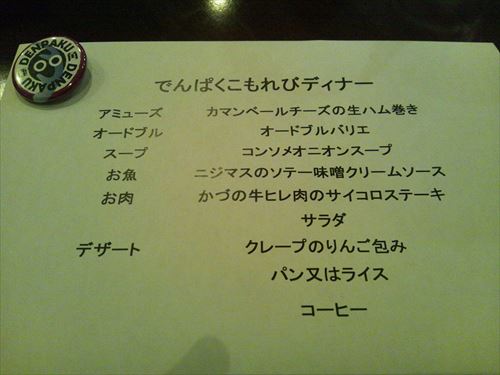 DENPAKU DENPAKU
でんぱくこもれびディナー
アミューズ カマンベールチーズの生ハム巻き
オードブル オードブルバリエ
スープ コンソメオニオンスープ
お魚 ニジマスのソテー味噌クリームソース
お肉 かづの牛ヒレ肉のサイコロステーキ
サラダ
デザート クレープのりんご包み
パン又はライス
コーヒー